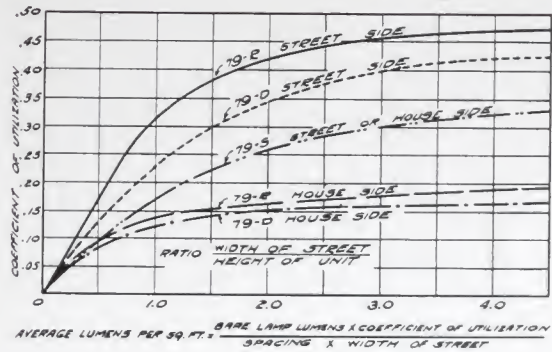 .50
.45
.40
.35
.30
.25
.20
.15
.10
.05
0
COEFFICIENT OF UTILIZATION
79-R STREET SIDE
79-D STREET SIDE
79-S STREET OR HOUSE SIDE
79-R HOUSE SIDE
79-D HOUSE SIDE
RATIO WIDTH OF STREET
HEIGHT OF UNIT
1.0 2.0 3.0 4.0
AVERAGE LUMENS PER SQ. FT. = BARE LAMP LUMENS X COEFFICIENT OF UTILIZATION
SPACING X WIDTH OF STREET